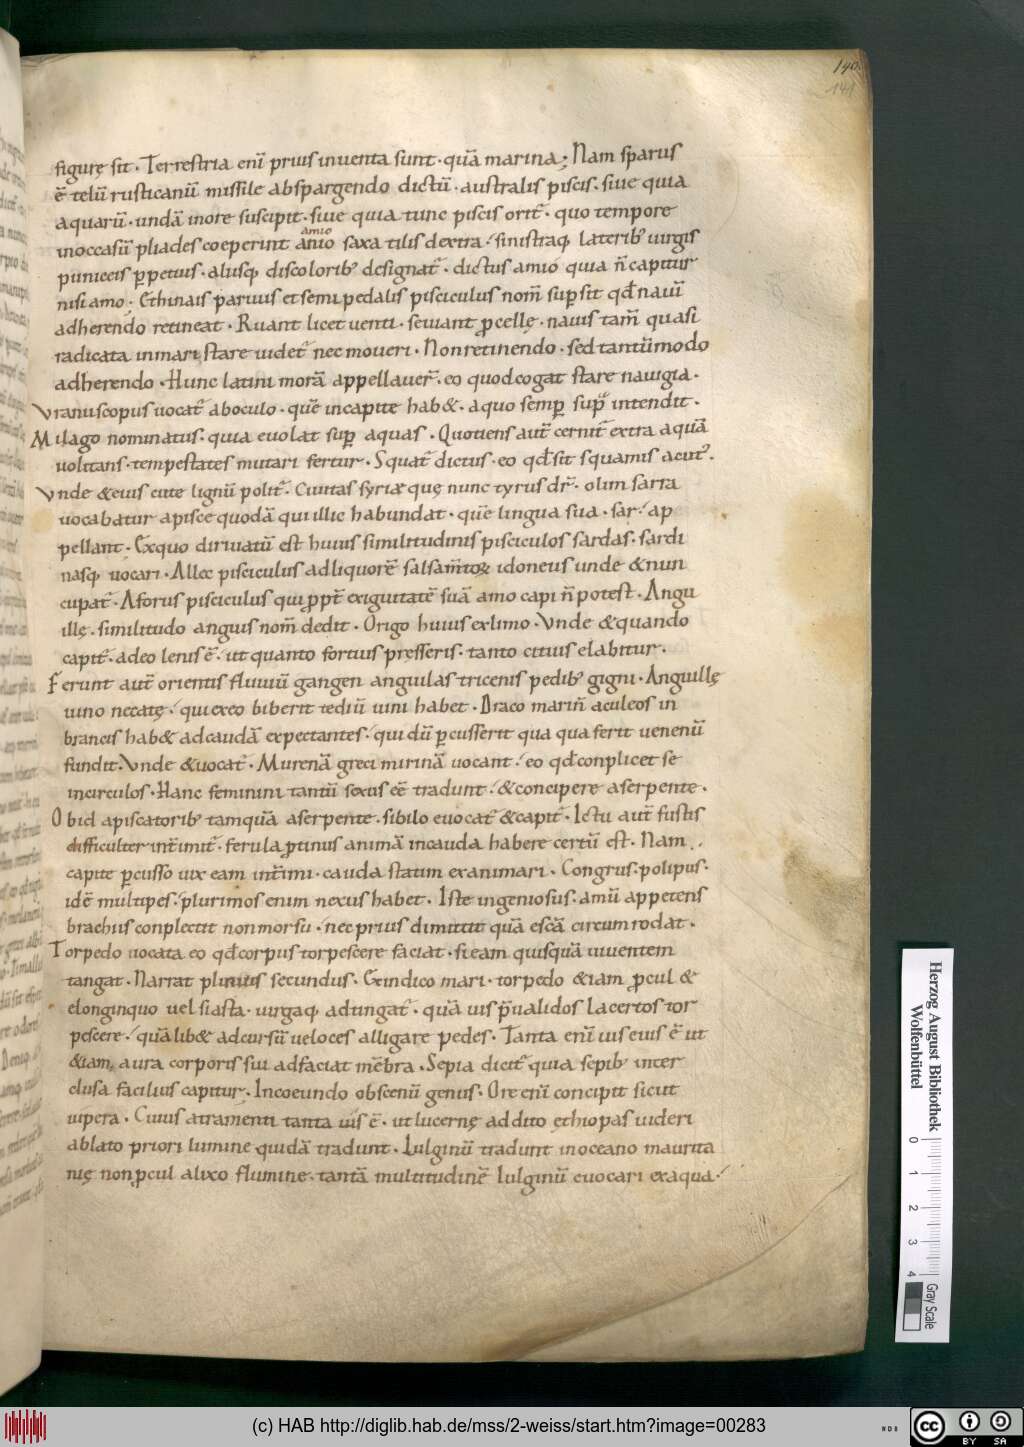 140.
141
figurę sit · Terrestria eni̅ prius inuenta sunt · qua̅ marina; Nam sparus
e̅ telu̅ rusticanu̅ missile abspargendo dictu̅ · australis piscis · siue quia
aquaru̅ · unda̅ inore suscipit · siue quia tunc piscis orit᷑ · quo tempore
amio
inoccasu̅ pliades coeperint anio saxatilis dextra · sinistraq; laterib; uirgis
puniceis ꝑpetuis · aliisq; discolorib; designat᷑ · dictus amio quia n̅ capitur
nisi amo · Ethinais paruus et semipedalis pisciculus nom̅ sup̱sit qđ naui̅
adherendo retineat · Ruant licet uenti · seuiant ꝓcellę · nauis tam̅ quasi
radicata inmari stare uidet᷑ nec moueri · Non retinendo · sed tantu̅modo
adherendo · Hunc latini mora̅ appellauer̅ · eo quod cogat stare nauigia ·
Vranuscopus uocat᷑ aboculo · que̅ incapite hab& · aquo semꝑ suꝑ intendit ·
Milago nominatus · quia euolat suꝑ aquas · Quotiens aut̅ cernit᷑ extra aqua̅
uolitans · tempestates mutari fertur · Squat᷑ dictus · eo qđ sit squamis acut᷒ ·
Vnde &eius cute lignu̅ polit᷑ · Ciuitas syriæ quę nunc tyrus dr̅ · olim sarra
uocabatur apisce quoda̅ qui illic habundat · que̅ lingua sua · sar · ap
pellant · Exquo diriuatu̅ est huius similitudinis pisciculos sardas · sardi
nasq; uocari · Allec pisciculus adliquore̅ salsam̅toꝝ idoneus unde &nun
cupat᷑ · Aforus pisciculus qui ꝓpt̅ exiguitate̅ sua̅ amo capi n̅ potest · Angu
illę · similitudo anguis nom̅ dedit · Origo huius exlimo · Vnde &quando
capit᷑ · adeo lenis e̅ · ut quanto fortius presseris · tanto citius elabitur ·
Ferunt aut̅ orientis fluuiu̅ gangen anguilas tricenis pedib; gigni · Anguillę
uino necatę · qui exeo biberit tediu̅ uini habet · Draco marin̅ aculeos in
brancis hab& adcauda̅ expectantes · qui du̅ ꝑcusserit qua qua ferit uenenu̅
fundit · Vnde &uocat᷑ · Murena̅ greci mirina̅ uocant · eo qđ conplicet se
incirculos · Hanc feminini tantu̅ sexus ee̅ tradunt · &concipere aserpente ·
Obid apiscatorib; tamqua̅ aserpente · sibilo euocat᷑ &capit᷑ · Ictu aut̅ fustis
difficulter int̅imit᷑ · ferula ꝓtinus anima̅ incauda habere certu̅ est · Nam
capite ꝑcusso uix eam int̅imi · cauda statim exanimari · Congrus · polipus ·
ide̅ multipes · plurimos enim nexus habet · Iste ingeniosus · amu̅ appetens
brachiis conplectit non morsu · nec prius dimittit qua̅ esca̅ circumrodat ·
Torpedo uocata eo qđ corpus torpescere faciat · si eam quisqua̅ uiuentem
tangat · Narrat plinius secundus · Exindico mari · torpedo &iam ꝓcul &
elonginquo uel si asta · uirgaq; adtingat᷑ · qua̅ uis p̅ualidos lacertos tor
pescere · qua̅ lib& adcursu̅ ueloces alligare pedes · Tanta eni̅ uis eius e̅ ut
&iam aura corporis sui adfaciat me̅bra · Sepia dicit᷑ quia sepib; inter
clusa facilius capitur · Incoeundo obscenu̅ genus · Ore eni̅ concipit sicut
uipera · Cuius atramenti tanta uis e̅ · ut lucernę addito ęthiopas uideri
ablato priori lumine quida̅ tradunt · Lulginu̅ tradunt inoceano maurita
nię non ꝓcul alixo flumine · tanta̅ multitudine̅ lulginu̅ euocari exaqua ·
Herzog August Bibliothek
Wolfenbüttel
0 1 2 3 4
Gray Scale
(c) HAB http://diglib.hab.de/mss/2-weiss/start.htm?image=00283
WDB
cc BY SA